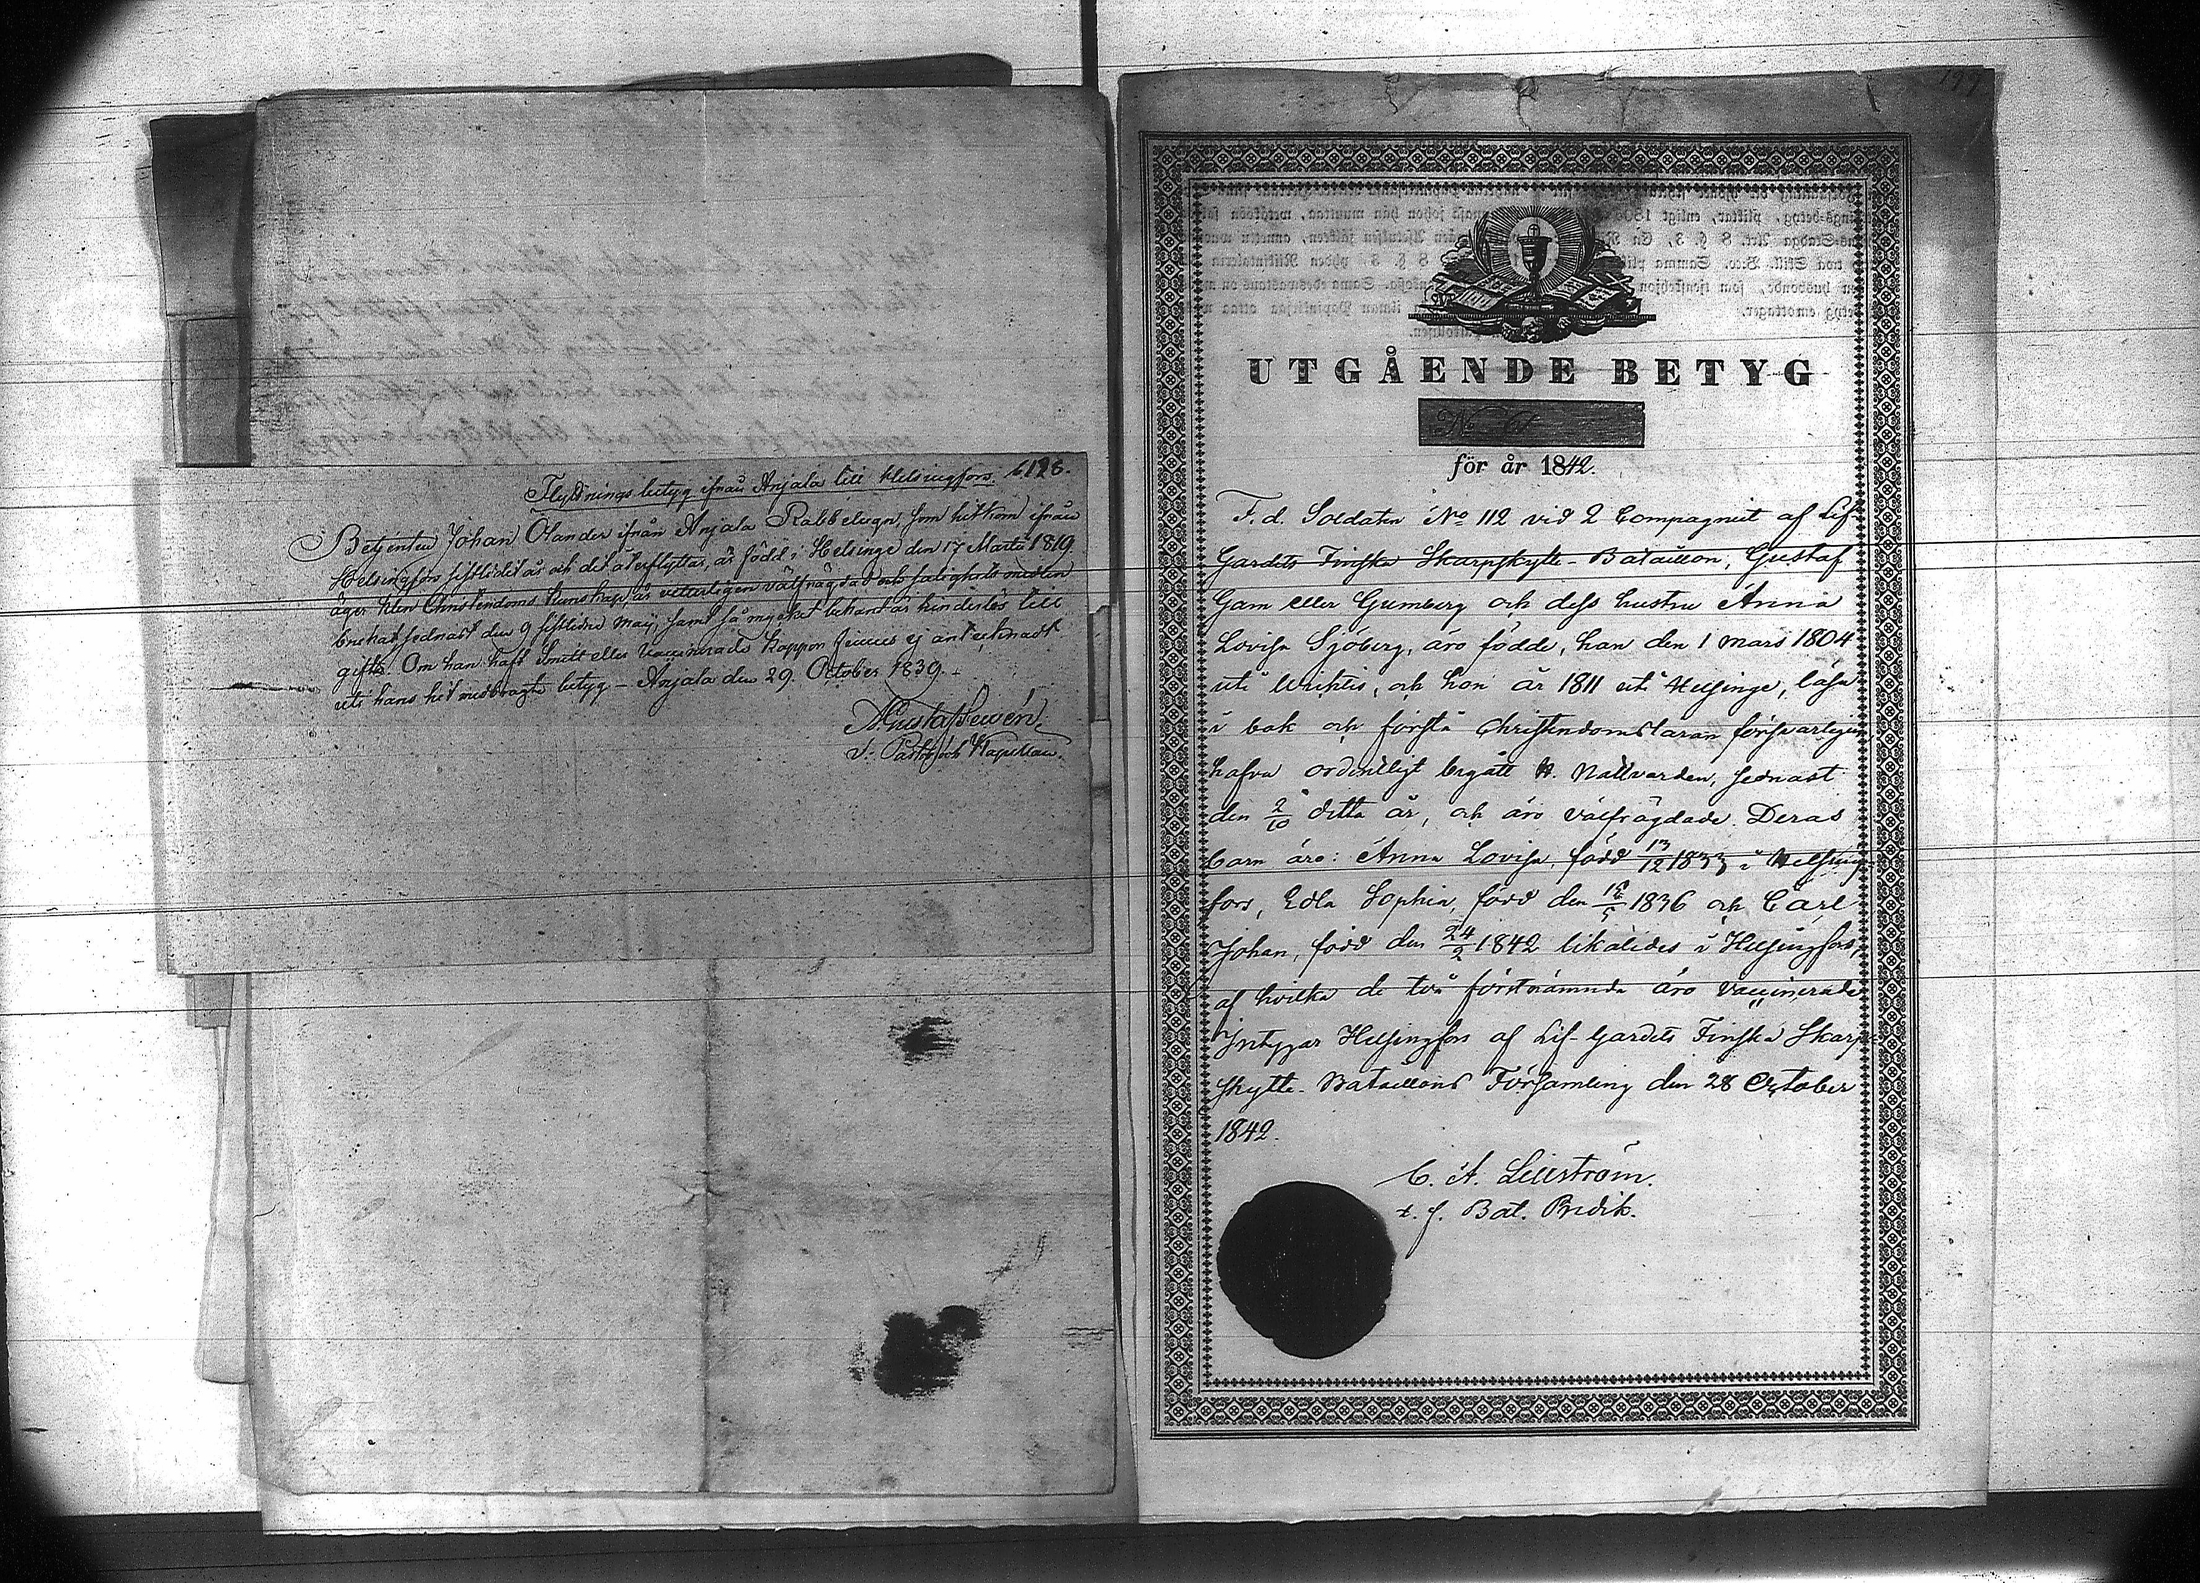 Flyttnings betyg ifrån Anjala till Helsingfors. 6198.
Betjenten Johan Olander ifrån Anjala Rabbelugn, som hitkom ifrån
Helsingfors sistledit år och dit återflyttar, är född i Helsinge den 17 Martii 1819.
äger klen Christendoms kunskap, är vitterligen välfrägdad och salighets medlen
brukat sednast den 9 sistledne Maij, samt så mycket bekant är hinderlös till
gifte. Om han haft Smitt eller Vaccinerade Koppor finnes ej antecknadt
uti hans hit medbragte betyg – Anjala den 29. October 1839.
A. Gustaf Sewén.
Past. och Kapellan.
199
UTGÅENDE BETYG
No 61
för år 1842.
F. d. Soldaten No 112 vid 2 Compagniet af Lif-
Gardets Finska Skarpskytte-Bataillon, Gustaf
Gam eller Gumberg och dess hustru Anna
Lovisa Sjöberg, äro födde, han den 1 Mars 1804
uti Wichtis, och hon år 1811 uti Helsinge, läsa
i bok och förstå Christendomsläran försvarligen,
hafva ordentligt begått H. Nattvarden, sednast
den 2/10 detta år, och äro välfrägdade. Deras
barn äro: Anna Lovisa, född 13/12 1833 i Helsing-
fors, Edla Sophia, född den 15/5 1836 och Carl
Johan, född den 24/2 1842 likaledes i Helsingfors,
af hvilka de två förstnämnda äro vaccinerade
Intygar Helsingfors af Lif-Gardets Finska Skarp-
skytte-Bataillons Församling den 28 October
1842.
C. A. Lillström.
t. f. Bat. Predik.